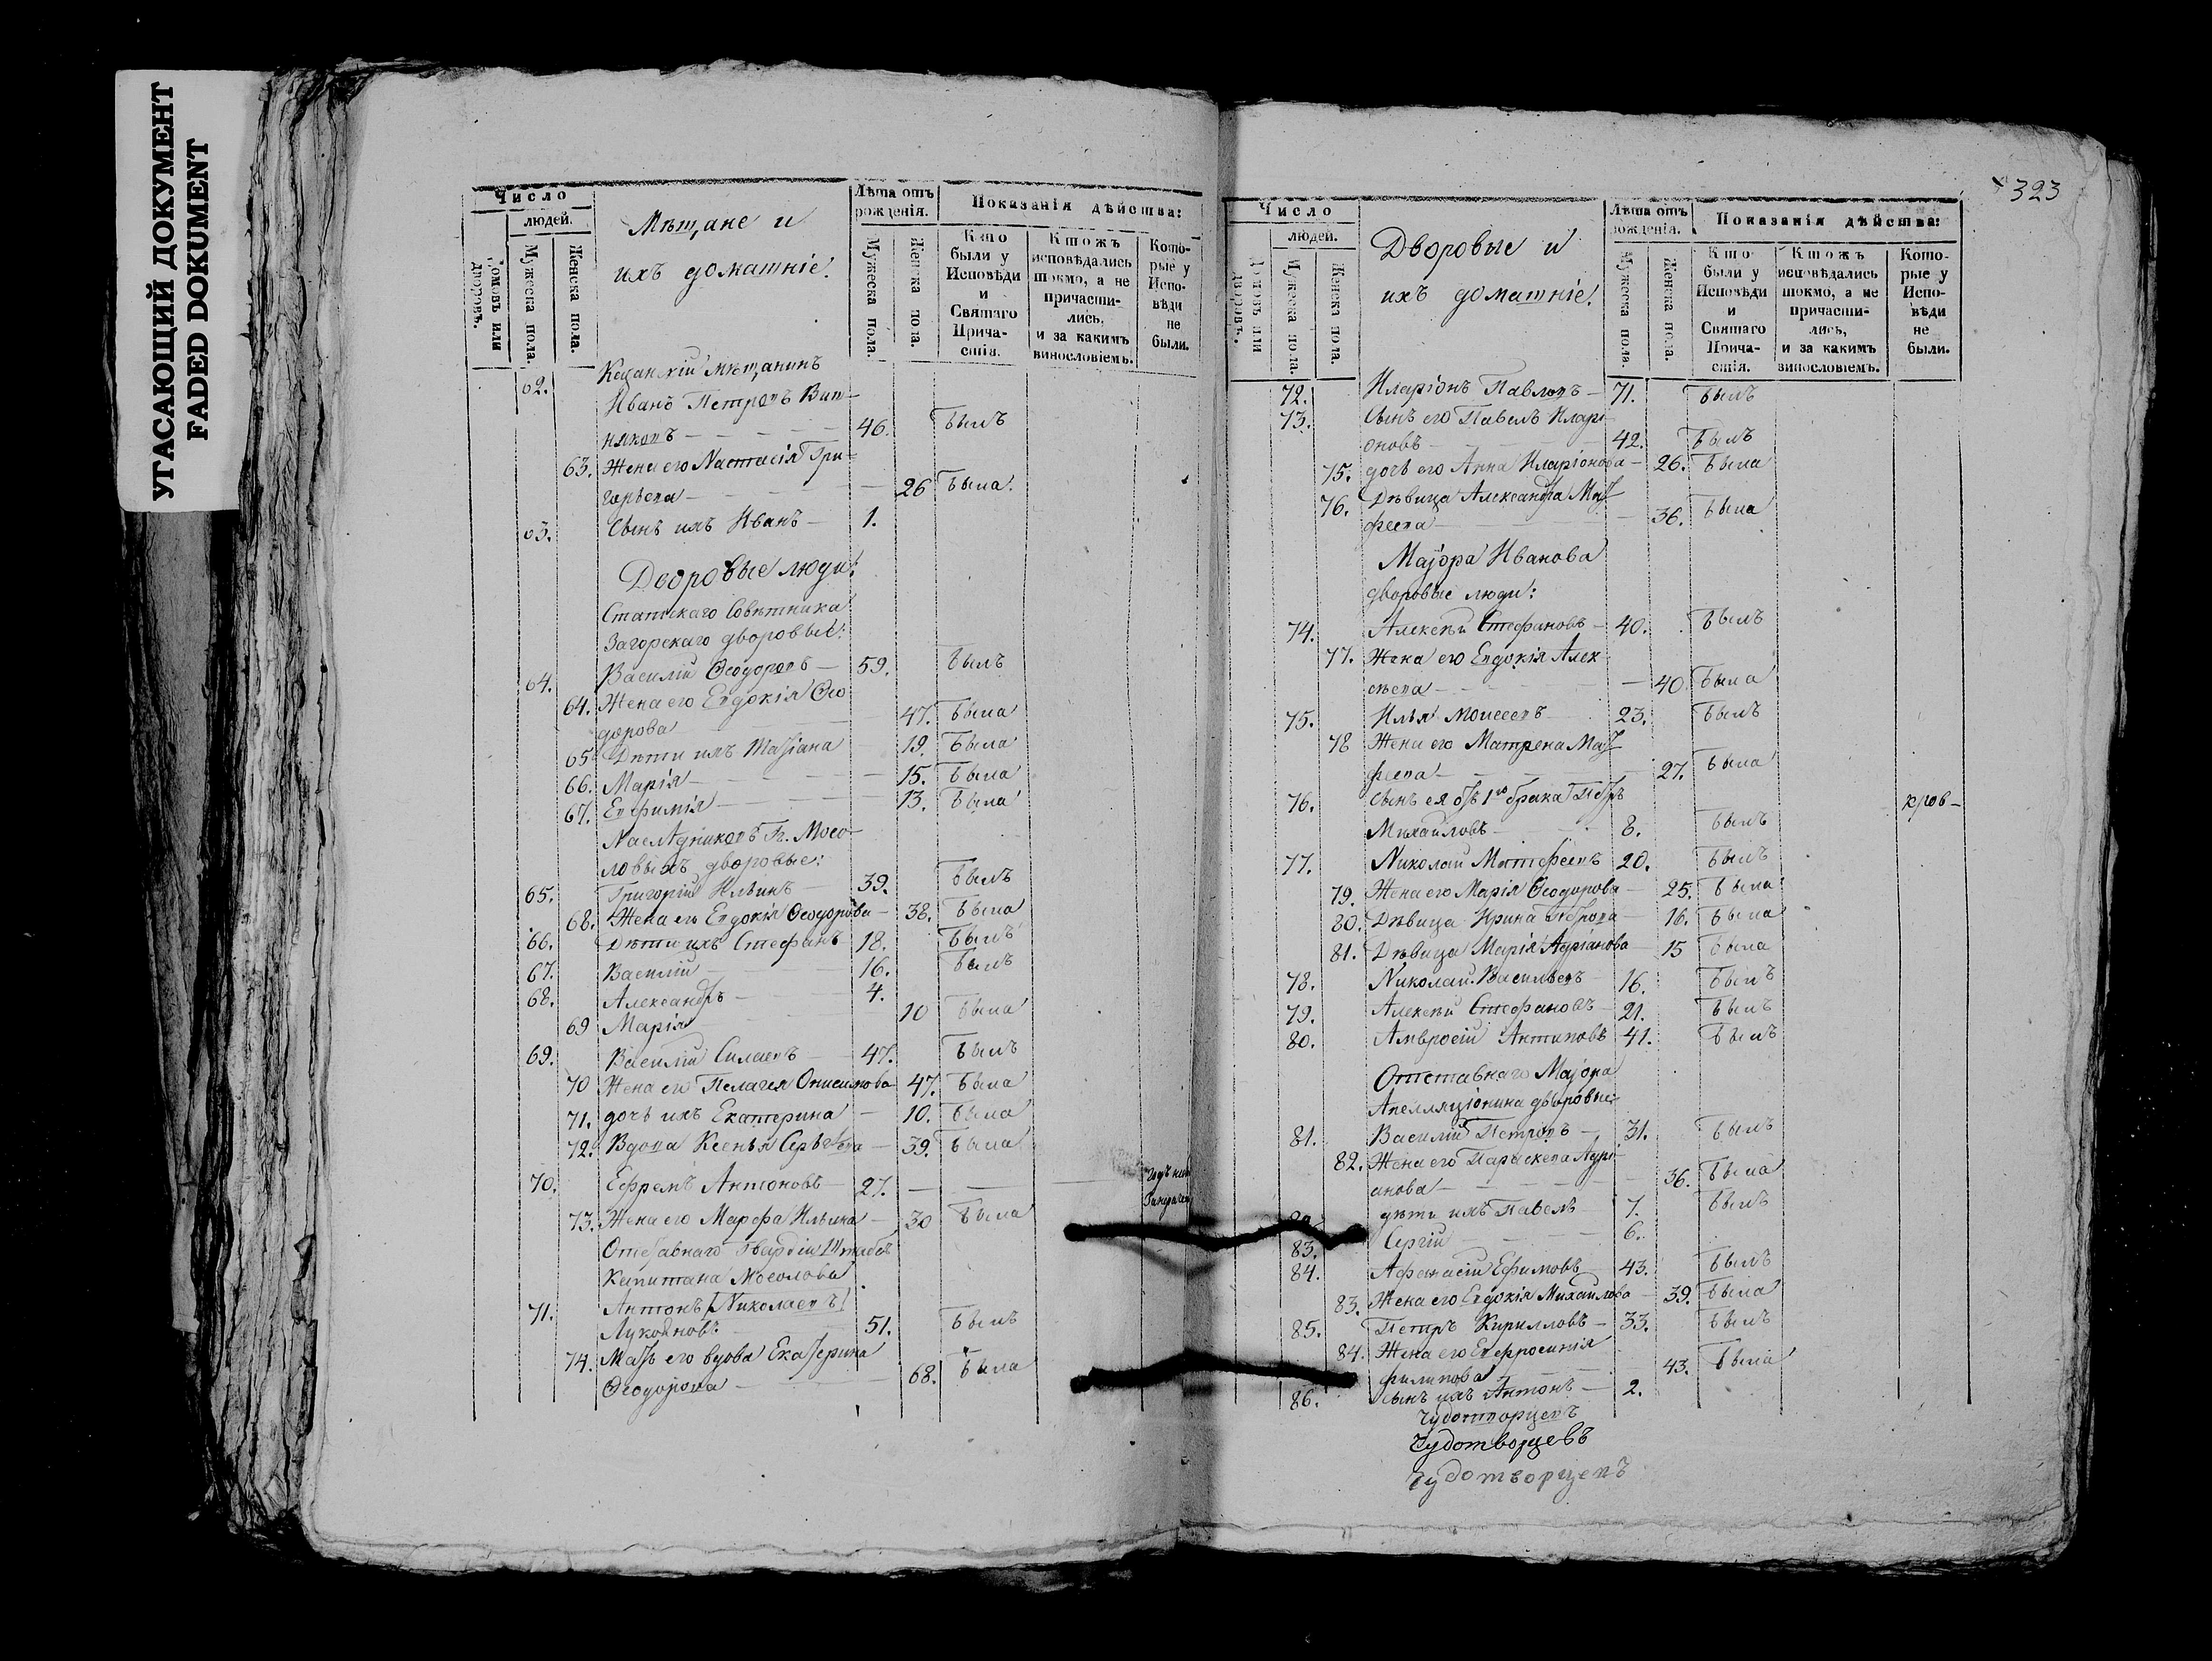 УГАСАЮЩИЙ ДОКУМЕНТ
FADED DOKUMENT
Число
людей.
домовъ или дворовъ.
Мужеска пола.
Женска пола.
Мѣщане и
ихъ домашніе.
Лѣта отъ рожденія.
Мужеска пола.
Женска пола.
Показанія дѣйства:
Кто были у Исповѣди и Святаго Причастія.
Ктожъ исповѣдались токмо, а не причастились, и за какимъ винословіемъ.
Которые у Исповѣди не были.
62. Казанскій мѣщанинъ
Иванъ Петровъ Вит-
няковъ — 46. былъ
63. Жена его Настасія Гри-
горьева — 26 была.
63. Сынъ ихъ Иванъ — 1.
Дворовые люди:
Статскаго Совѣтника
Загорскаго дворовые:
64. Василій Ѳеодоровъ — 59. былъ
64. Жена его Евдокія Ѳео
дорова 47. была
65 Дѣти ихъ Татіана 19. была
66. Марія — 15. была
67. Евфимія — 13. была
Наслѣдниковъ Г. Мосо-
ловыхъ дворовые:
65. Григорій Ильинъ — 39. былъ
68. Жена его Евдокія Ѳеодорова — 38. была
66. Дѣти ихъ Стефанъ 18. былъ
67. Василій — 16. былъ
68. Александръ — 4.
69 Марія 10 была
69. Василій Силаевъ — 47. былъ
70 Жена его Пелагея Онисимова 47. была
71. дочь ихъ Екатерина — 10. была
72. Вдова Ксенья Сергѣева — 39. была
70. Ефремъ Антоновъ — 27. —
73. Жена его Марфа Ильина — 30 была
Отставнаго Гвардіи Штабсъ
Капитана Мосолова
71. Антонъ [Николаевъ]
Лукояновъ 51. былъ
74. Мать его вдова Екатерина
Ѳеодорова — 68. была
323
Число
людей.
домовъ или дворовъ.
Мужеска пола.
Женска пола.
Дворовые и
ихъ домашніе.
Лѣта отъ рожденія.
Мужеска пола
Женска пола.
Показанія дѣйства:
Кто были у Исповѣди и Святаго Причастія.
Ктожъ исповѣдались токмо, а не причастились, и за какимъ винословіемъ.
Которые у Исповѣди не были.
72. Иларіонъ Павловъ — 71. былъ
73. Сынъ его Павелъ Илар-
оновъ 42. былъ
75. дочь его Анна Иларіонова — 26. была
76. Дѣвица Александра Мат
феева — 36. была
Маіора Иванова
дворовые люди:
74. Алексѣй Стефановъ — 40. былъ
77. Жена его Евдокія Алек
сѣева — 40. была
75. Илья Моисеевъ 23. былъ
78 Жена его Матрена Мат
феева — 27. была
76. Сынъ ея отъ 1го брака Петръ
Михайловъ — 8. былъ
кров-
77. Николай Матфеевъ 20. былъ
79. Жена его Марія Ѳеодорова — 25. была
80. Дѣвица Ирина Петрова — 16. была
81. Дѣвица Марія Адріанова 15 была
78. Николай Васильевъ — 16. былъ
79. Алексѣй Стефановъ — 21. былъ
80. Амвросій Антиповъ 41. былъ
Отставнаго Маіора
Апелляціонина дворовые
81. Василій Петровъ — 31. былъ
82. Жена его Параскева Адрі-
анова — 36. была
дѣти ихъ Павелъ 7. былъ
83. Сергій — 6.
84. Афанасій Ефимовъ 43. былъ
83. Жена его Евдокія Михайлова 39. была
85. Петръ Кирилловъ — 33. былъ
84. Жена его Евфросинія
филипова 43. была
86. сынъ ихъ Антонъ — 2.
Чудотворцевъ
Чудотворцевъ
Чудотворцевъ